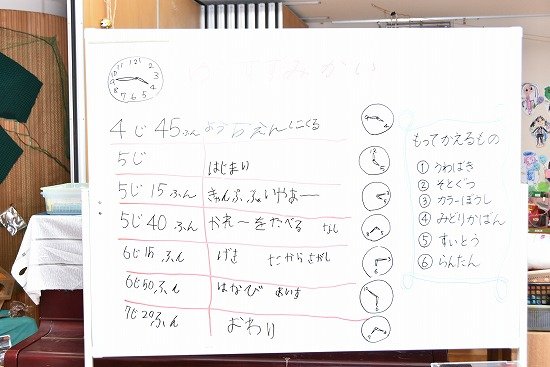 ゆうすずみかい
4じ 45ふん ようちえんにくる
5じ はじまり
5じ 15ふん きゃんぷふぁいやあー
5じ 40ふん かれーをたべる なし
6じ 15ふん げき たからさがし
6じ50ふん はなび あいす
7じ20ふん おわり
もってかえるもの
① うわばき
② そとぐつ
③ カラーぼうし
④ みどりかばん
⑤ すいとう
⑥ らんたん